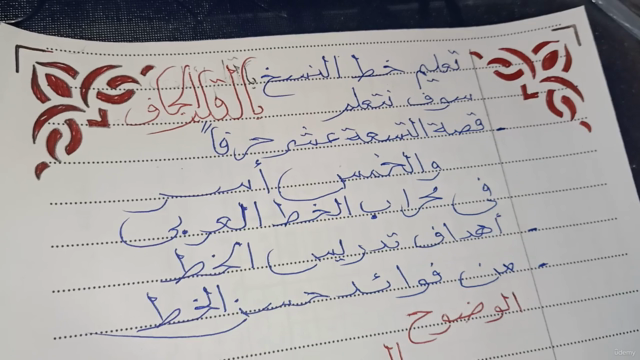 تعليم خط النسخ بالقلم الجاف
سوف نتعلم
- قصة التسعة عشر حرفاً
والخمس أسر
في محراب الخط العربي
- أهداف تدريس الخط
- من فوائد حسن الخط
الوضوح
udemy